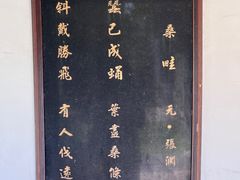 桑畦 元·張淵
蠶已成蛹 葉盡桑條
斜戴勝飛 有人伐遠